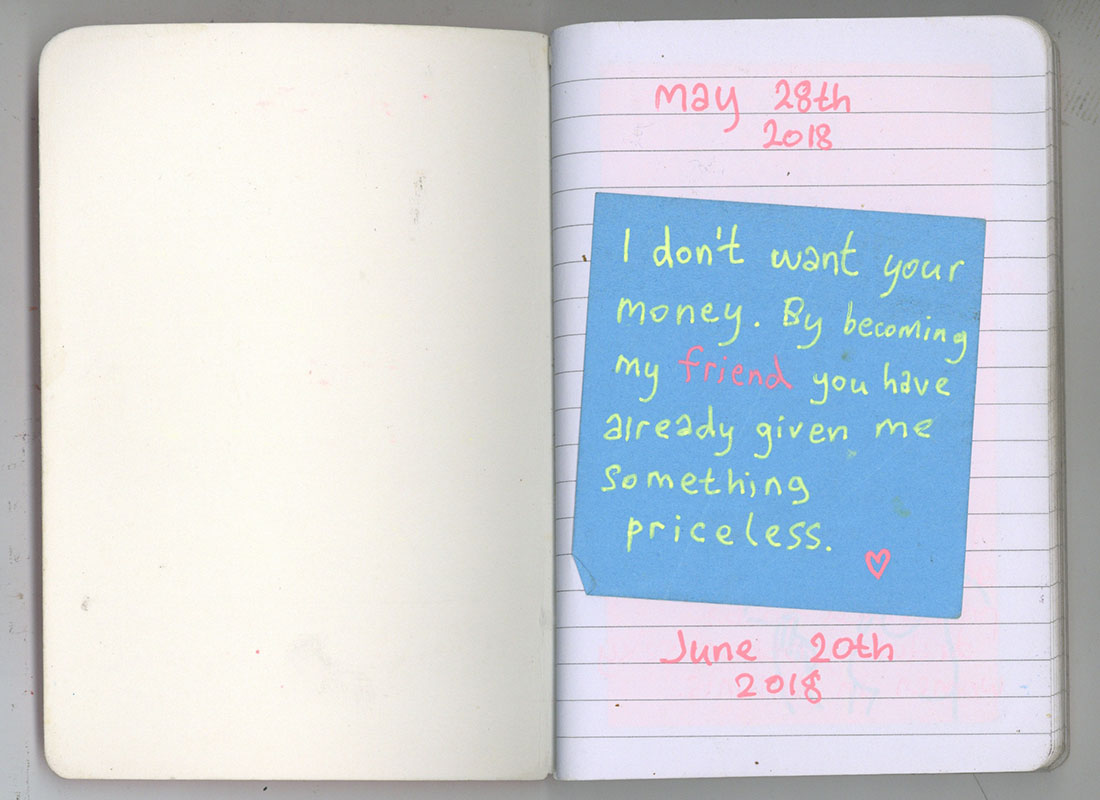 may 28th
2018
I don't want your
money. By becoming
my friend you have
already given me
something
priceless.
June 20th
2018